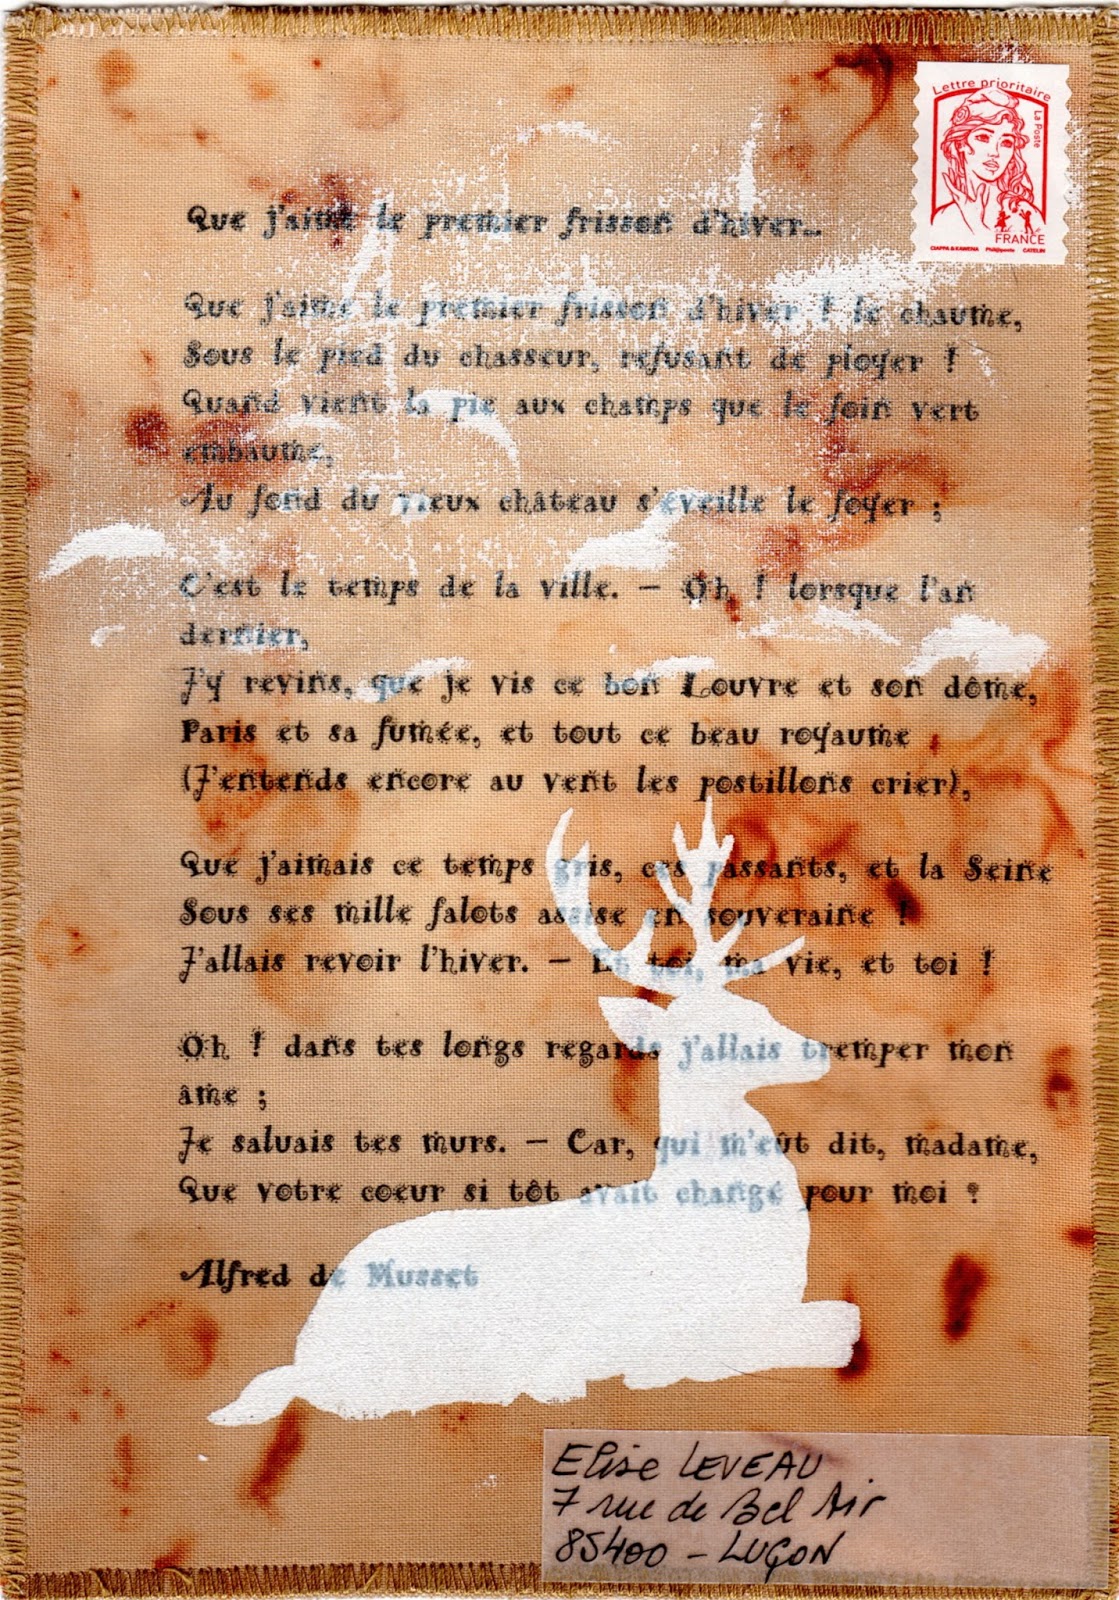 Lettre prioritaire
La Poste
FRANCE
CIAPPA & KAWENA Phil@poste CATELIN
Que j'aime le premier frisson d'hiver...
Que j'aime le premier frisson d'hiver ! le chaume,
Sous le pied du chasseur, refusant de ployer !
Quand vient la pie aux champs que le foin vert
embaume,
Au fond du vieux château s'éveille le foyer ;
C'est le temps de la ville. – Oh ! lorsque l'an
dernier,
J'y revins, que je vis ce bon Louvre et son dôme,
Paris et sa fumée, et tout ce beau royaume
(J'entends encore au vent les postillons crier),
Que j'aimais ce temps gris, ces passants, et la Seine
Sous ses mille falots assise en souveraine !
J'allais revoir l'hiver. – Et toi, ma vie, et toi !
Oh ! dans tes longs regards j'allais tremper mon
âme ;
Je saluais tes murs. – Car, qui m'eût dit, madame,
Que votre coeur si tôt avait changé pour moi ?
Alfred de Musset
Elise LEVEAU
7 rue de Bel Air
85400 – LUÇON